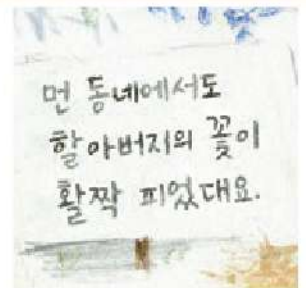 먼 동네에서도
할아버지의 꽃이
활짝 피었대요.